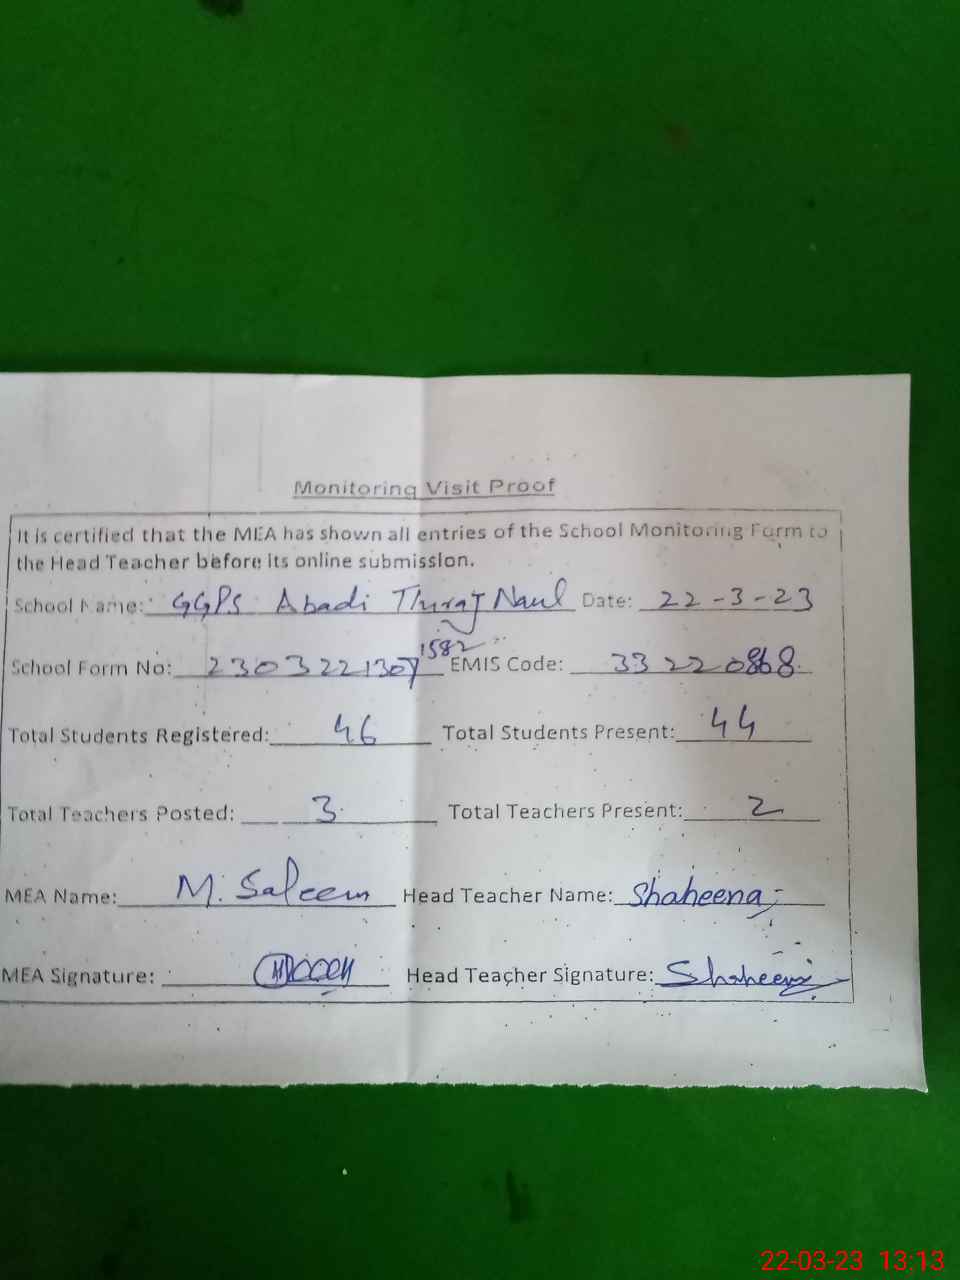 Monitoring Visit Proof
It is certified that the MEA has shown all entries of the School Monitoring Form to
the Head Teacher before its online submission.
School Name: GGPS Abadi Thiraj Naul Date: 22-3-23
School Form No: 2303221307 1582 EMIS Code: 33220868
Total Students Registered: 46 Total Students Present: 44
Total Teachers Posted: 3 Total Teachers Present: 2
MEA Name: M. Saleem Head Teacher Name: Shaheena
MEA Signature: Head Teacher Signature: Shaheena
22-03-23 13:13